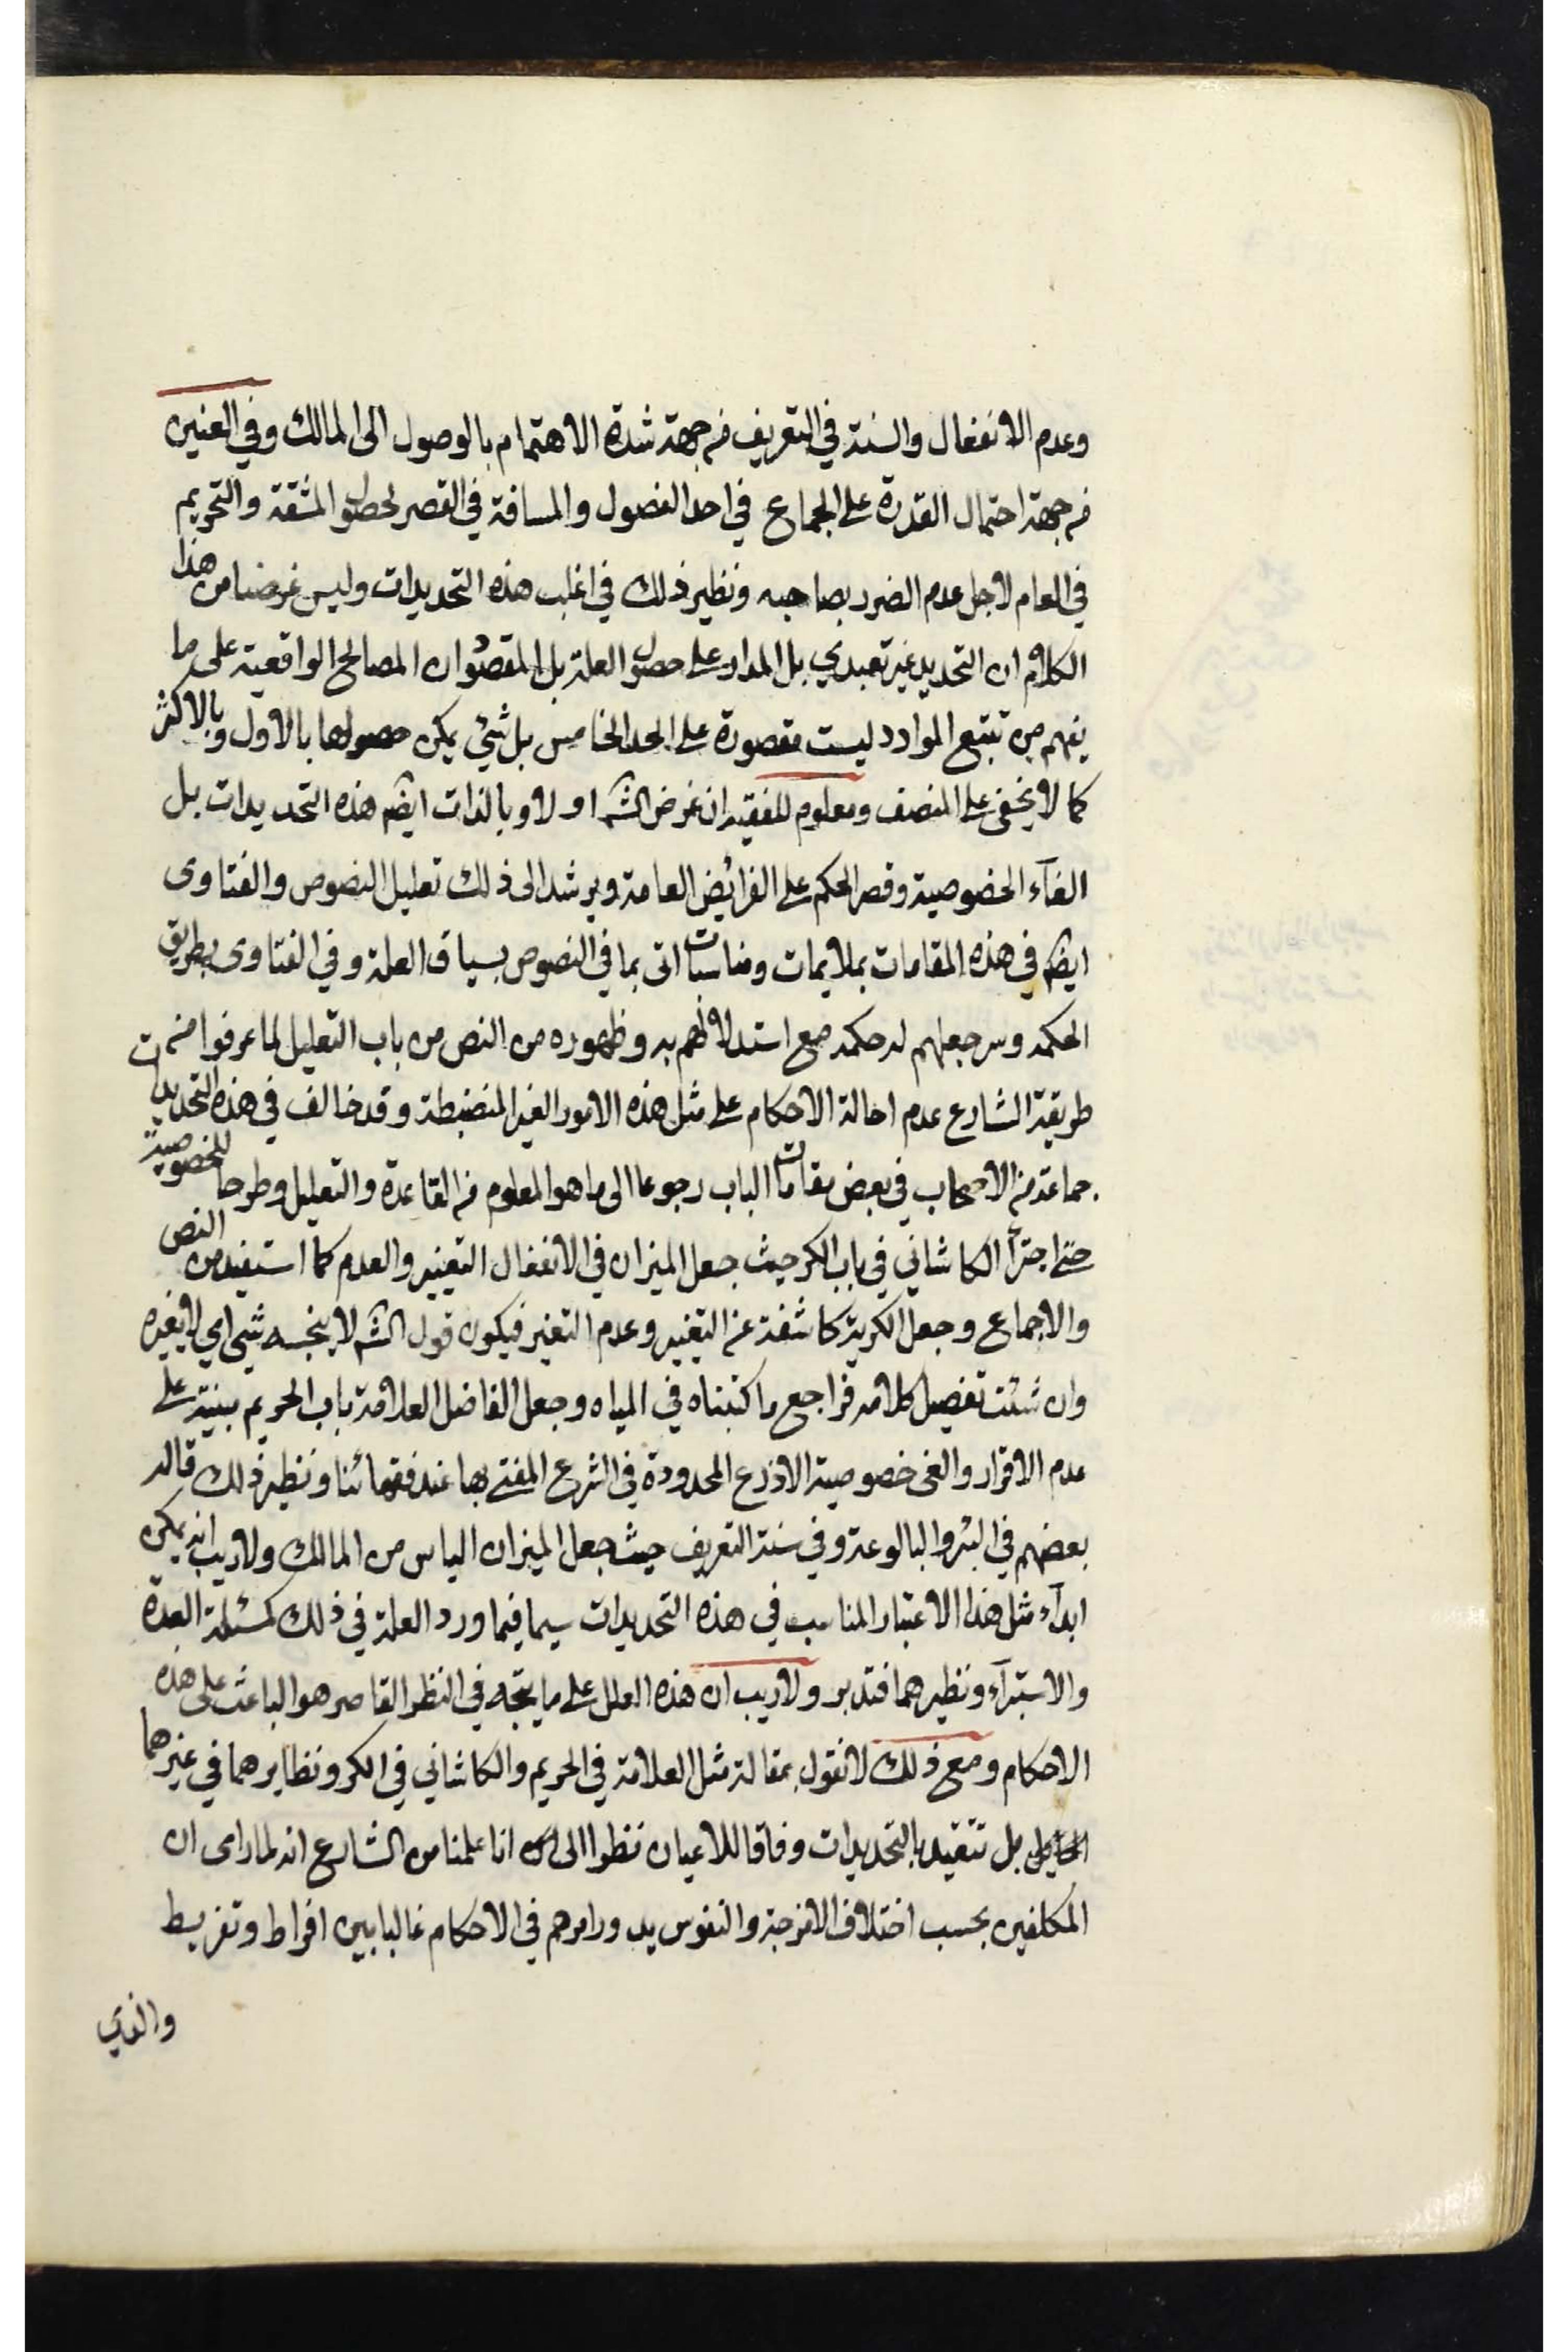 وعدم الانفعال والسنة في التعريف من جهة شدة الاهتمام بالوصول الى المالك وفي العنين
من جهة احتمال القدرة على الجماع في احد الفصول والمسافة في القصر لحصول المشقة والتحريم
في العام لاجل عدم الضرر بصاحبه ونظير ذلك في اغلب هذه التحديدات وليس غرضنا من هذا
الكلام ان التحديد غير تعبدي بل المدار على حصول العلة بل المقصود ان المصالح الواقعية على ما
يفهم من تتبع الموارد ليست مقصورة على الحد الخامس بل شيئ يمكن حصولها بالاول وبالاكثر
كما لا يخفى على المنصف ومعلوم للفقيه ان غرض الش اولا وبالذات ايض هذه التحديدات بل
الغآء الخصوصية وقصر الحكم على الفرائض العامة ويرشد الى ذلك تعليل النصوص والفتاوى
ايض في هذه المقامات بملايمات ومناسبات اتى بما في النصوص بسياق العلة وفي الفتاوى بطريق
الحكمة وسر جعلهم له حكمة مع استدلالهم به وظهوره من النص من باب التعليل لما عرفوا من
طريقة الشارع عدم احالة الاحكام على مثل هذه الامور الغير المنضبطة وقد خالف في هذه التحديدات
جماعة من الاصحاب في بعض مقامات الباب رجوعا الى ما هو المعلوم من القاعدة والتعليل وطرحا للخصوصية
حتى اجترأ الكاشاني في باب الكر حيث جعل الميزان في الانفعال التغيير والعدم كما استفيد من النص
والاجماع وجعل الكرية كاشفة عن التغيير وعدم التغير فيكون قول الش لا ينجسه شيئ اي لا يغيره
وان شئت تفصيل كلامه فراجع ما كتبناه في المياه وجعل الفاضل العلامة باب الحريم مبنية على
عدم الاقرار والغى خصوصية الاذرع المحدودة في الشرع المفتى بها عند فقهائنا ونظير ذلك قاله
بعضهم في البئر والبالوعة وفي سنة التعريف حيث جعل الميزان الياس من المالك ولا ريب انه يمكن
ابدآء مثل هذا الاعتبار المناسب في هذه التحديدات سيما فيما ورد العلة في ذلك كمسئلة العدة
والاستبرآء ونظيرهما فتدبر ولا ريب ان هذه العلل على ما يتجه في النظر القاصر هو الباعث على هذه
الاحكام ومع ذلك لا نقول بمقالة مثل العلامة في الحريم والكاشاني في الكر ونظايرهما في غيرهما
بل نتقيد بالتحديدات وفاقا للاعيان نظرا الى انا علمنا من الشارع انه لما راى ان
المكلفين بحسب اختلاف الامزجة والنفوس يدور امرهم في الاحكام غالبا بين افراط وتفريط
والذي